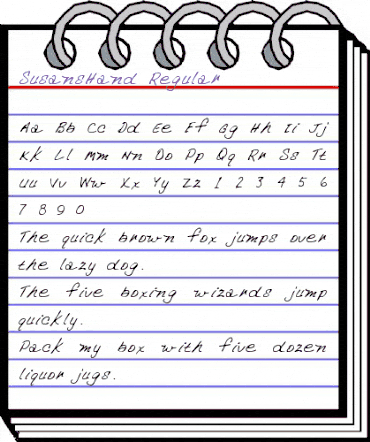 SusansHand Regular
Aa Bb Cc Dd Ee Ff Gg Hh Ii Jj
Kk Ll Mm Nn Oo Pp Qq Rr Ss Tt
Uu Vv Ww Xx Yy Zz 1 2 3 4 5 6
7 8 9 0
The quick brown fox jumps over
the lazy dog.
The five boxing wizards jump
quickly.
Pack my box with five dozen
liquor jugs.